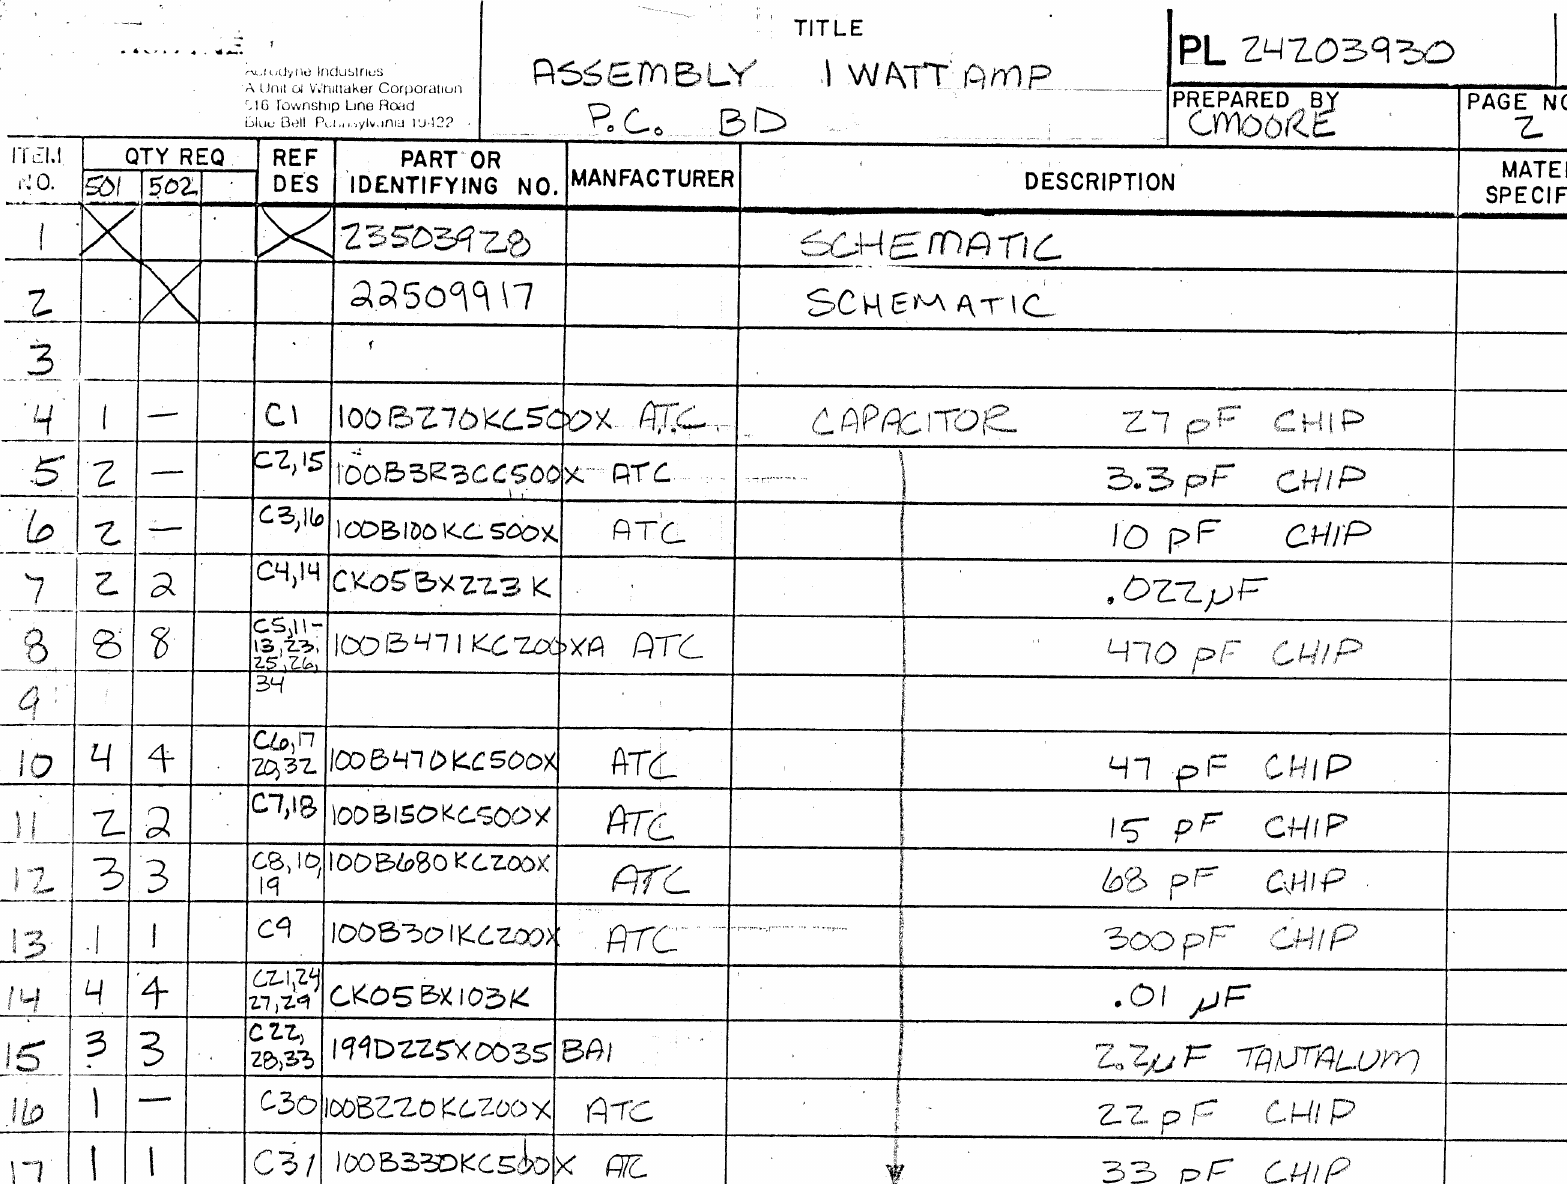 TITLE
Aerodyne Industries
A Unit of Whittaker Corporation
516 Township Line Road
Blue Bell, Pennsylvania 19422
ASSEMBLY 1 WATT AMP
P.C. BD
PL 24203930
PREPARED BY
CMOORE
PAGE NO
2
ITEM NO. QTY REQ 501 502 REF DES PART OR IDENTIFYING NO. MANFACTURER DESCRIPTION MATE SPECIF
1 23503928 SCHEMATIC
2 22509917 SCHEMATIC
3
4 1 — C1 100B270KC500X ATC CAPACITOR 27 pF CHIP
5 2 — C2,15 100B3R3CC500X ATC 3.3 pF CHIP
6 2 — C3,16 100B100KC500X ATC 10 pF CHIP
7 2 2 C4,14 CK05BX223K .022µF
8 8 8 C5,11-13,23,25,26, 100B471KC200XA ATC 470 pF CHIP
9 34
10 4 4 C6,17 20,32 100B470KC500X ATC 47 pF CHIP
11 2 2 C7,18 100B150KC500X ATC 15 pF CHIP
12 3 3 C8,10,19 100B680KC200X ATC 68 pF CHIP
13 1 1 C9 100B301KC200X ATC 300pF CHIP
14 4 4 C21,24 27,29 CK05BX103K .01 µF
15 3 3 C22, 28,33 199D225X0035BA1 2.2µF TANTALUM
16 1 — C30 100B220KC200X ATC 22 pF CHIP
17 1 1 C31 100B330KC500X ATC 33 pF CHIP